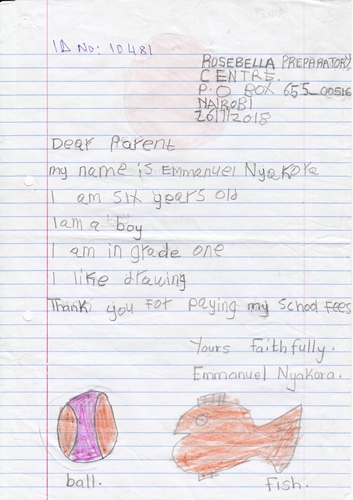 ID No: 10481
ROSEBELLA PREPARATORY
CENTRE.
P.O BOX 655_00516
NAIROBI
26/7/2018
Dear Parent
my name is EMMANUEL NyaKora
I am six years old
I am a boy
I am in grade one
I like drawing
Thank you For paying my School Fees
Yours faithfully.
Emmanuel Nyakora.
ball.
Fish.